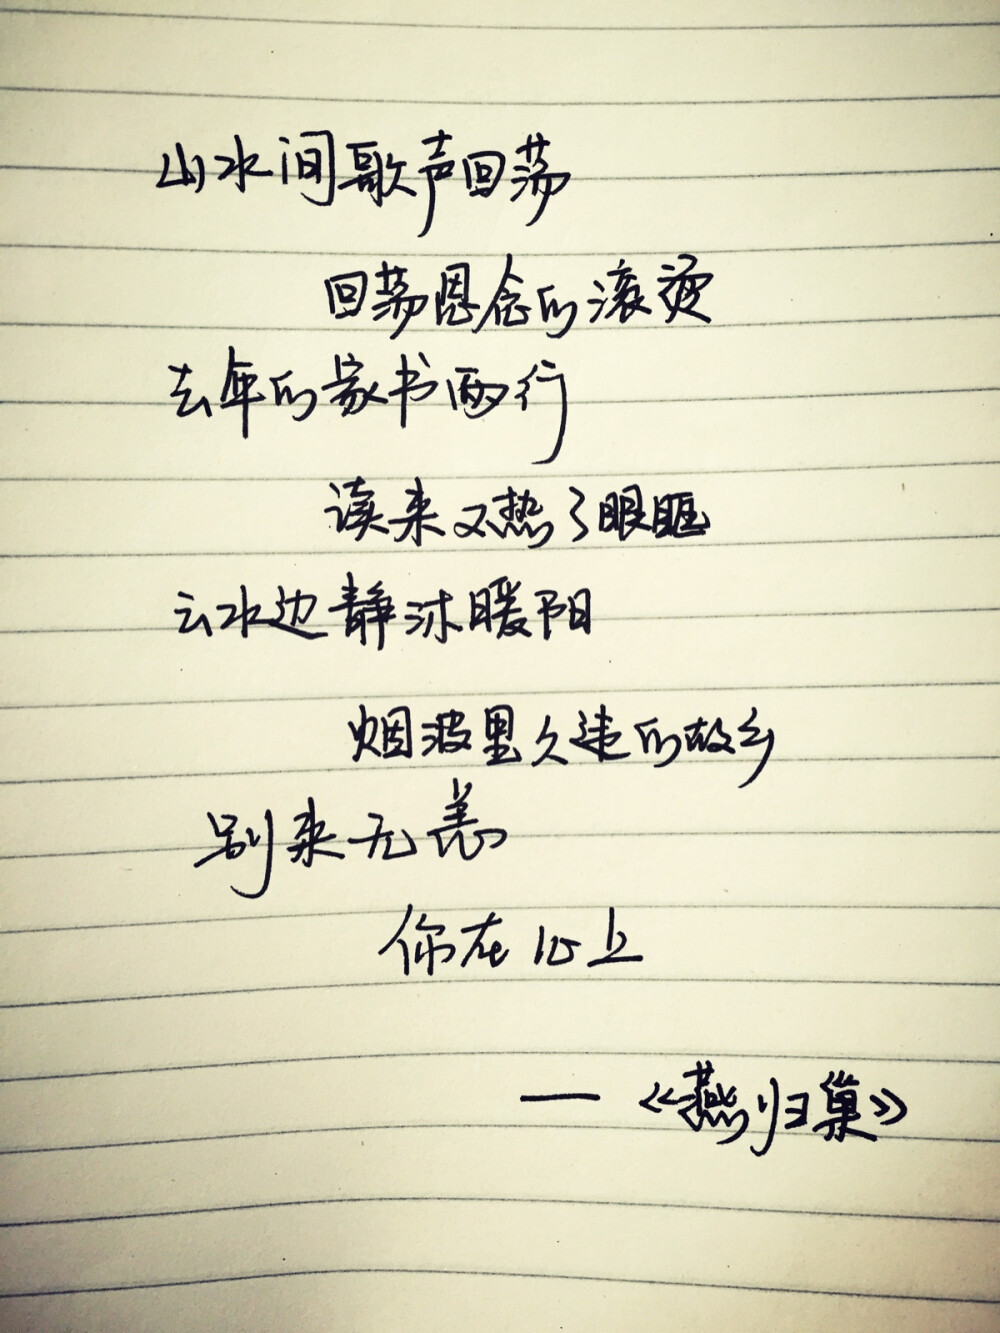 山水间歌声回荡
回荡思念的滚烫
去年的家书两行
读来又热了眼眶
云水边静沐暖阳
烟波里久违的故乡
别来无恙
你在心上
—《燕归巢》